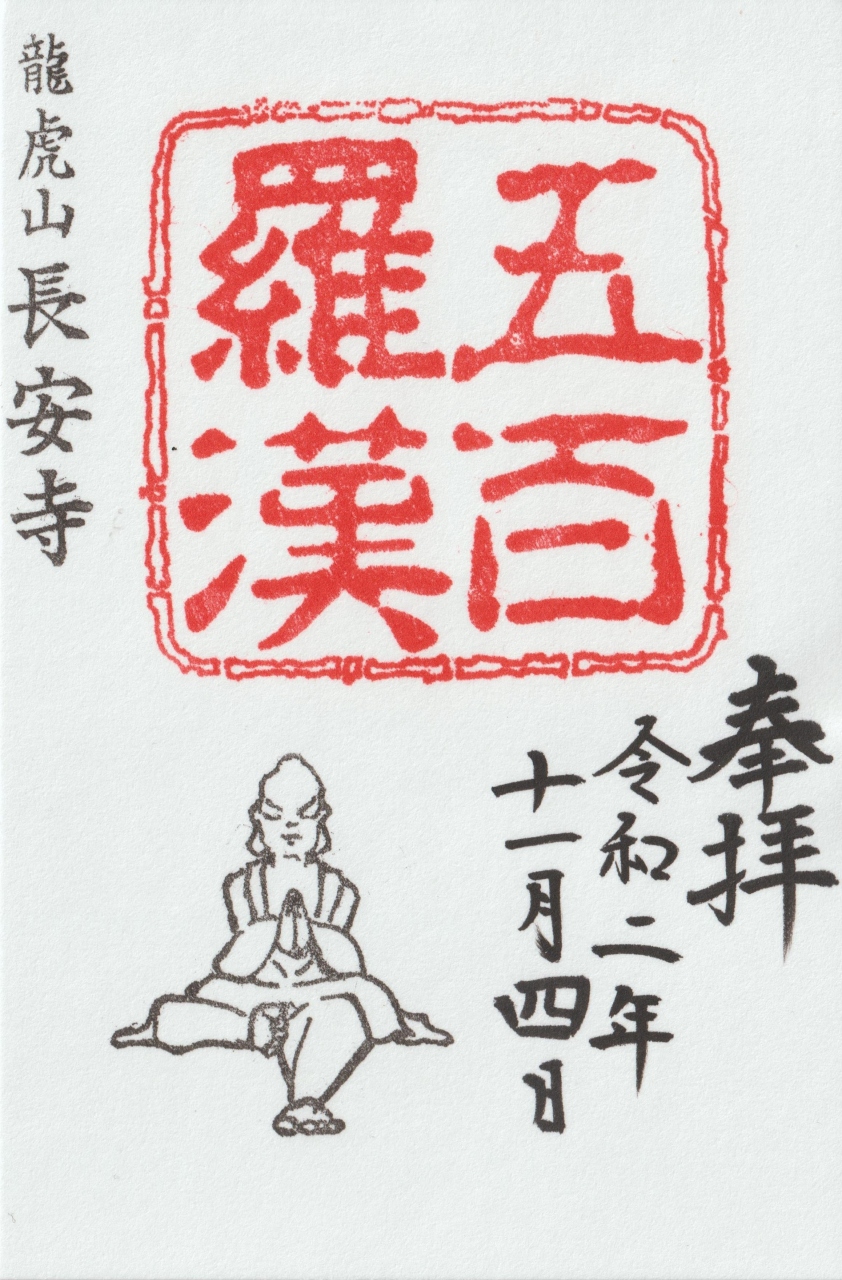 奉拝
令和二年
十一月四日
五百
羅漢
龍虎山長安寺